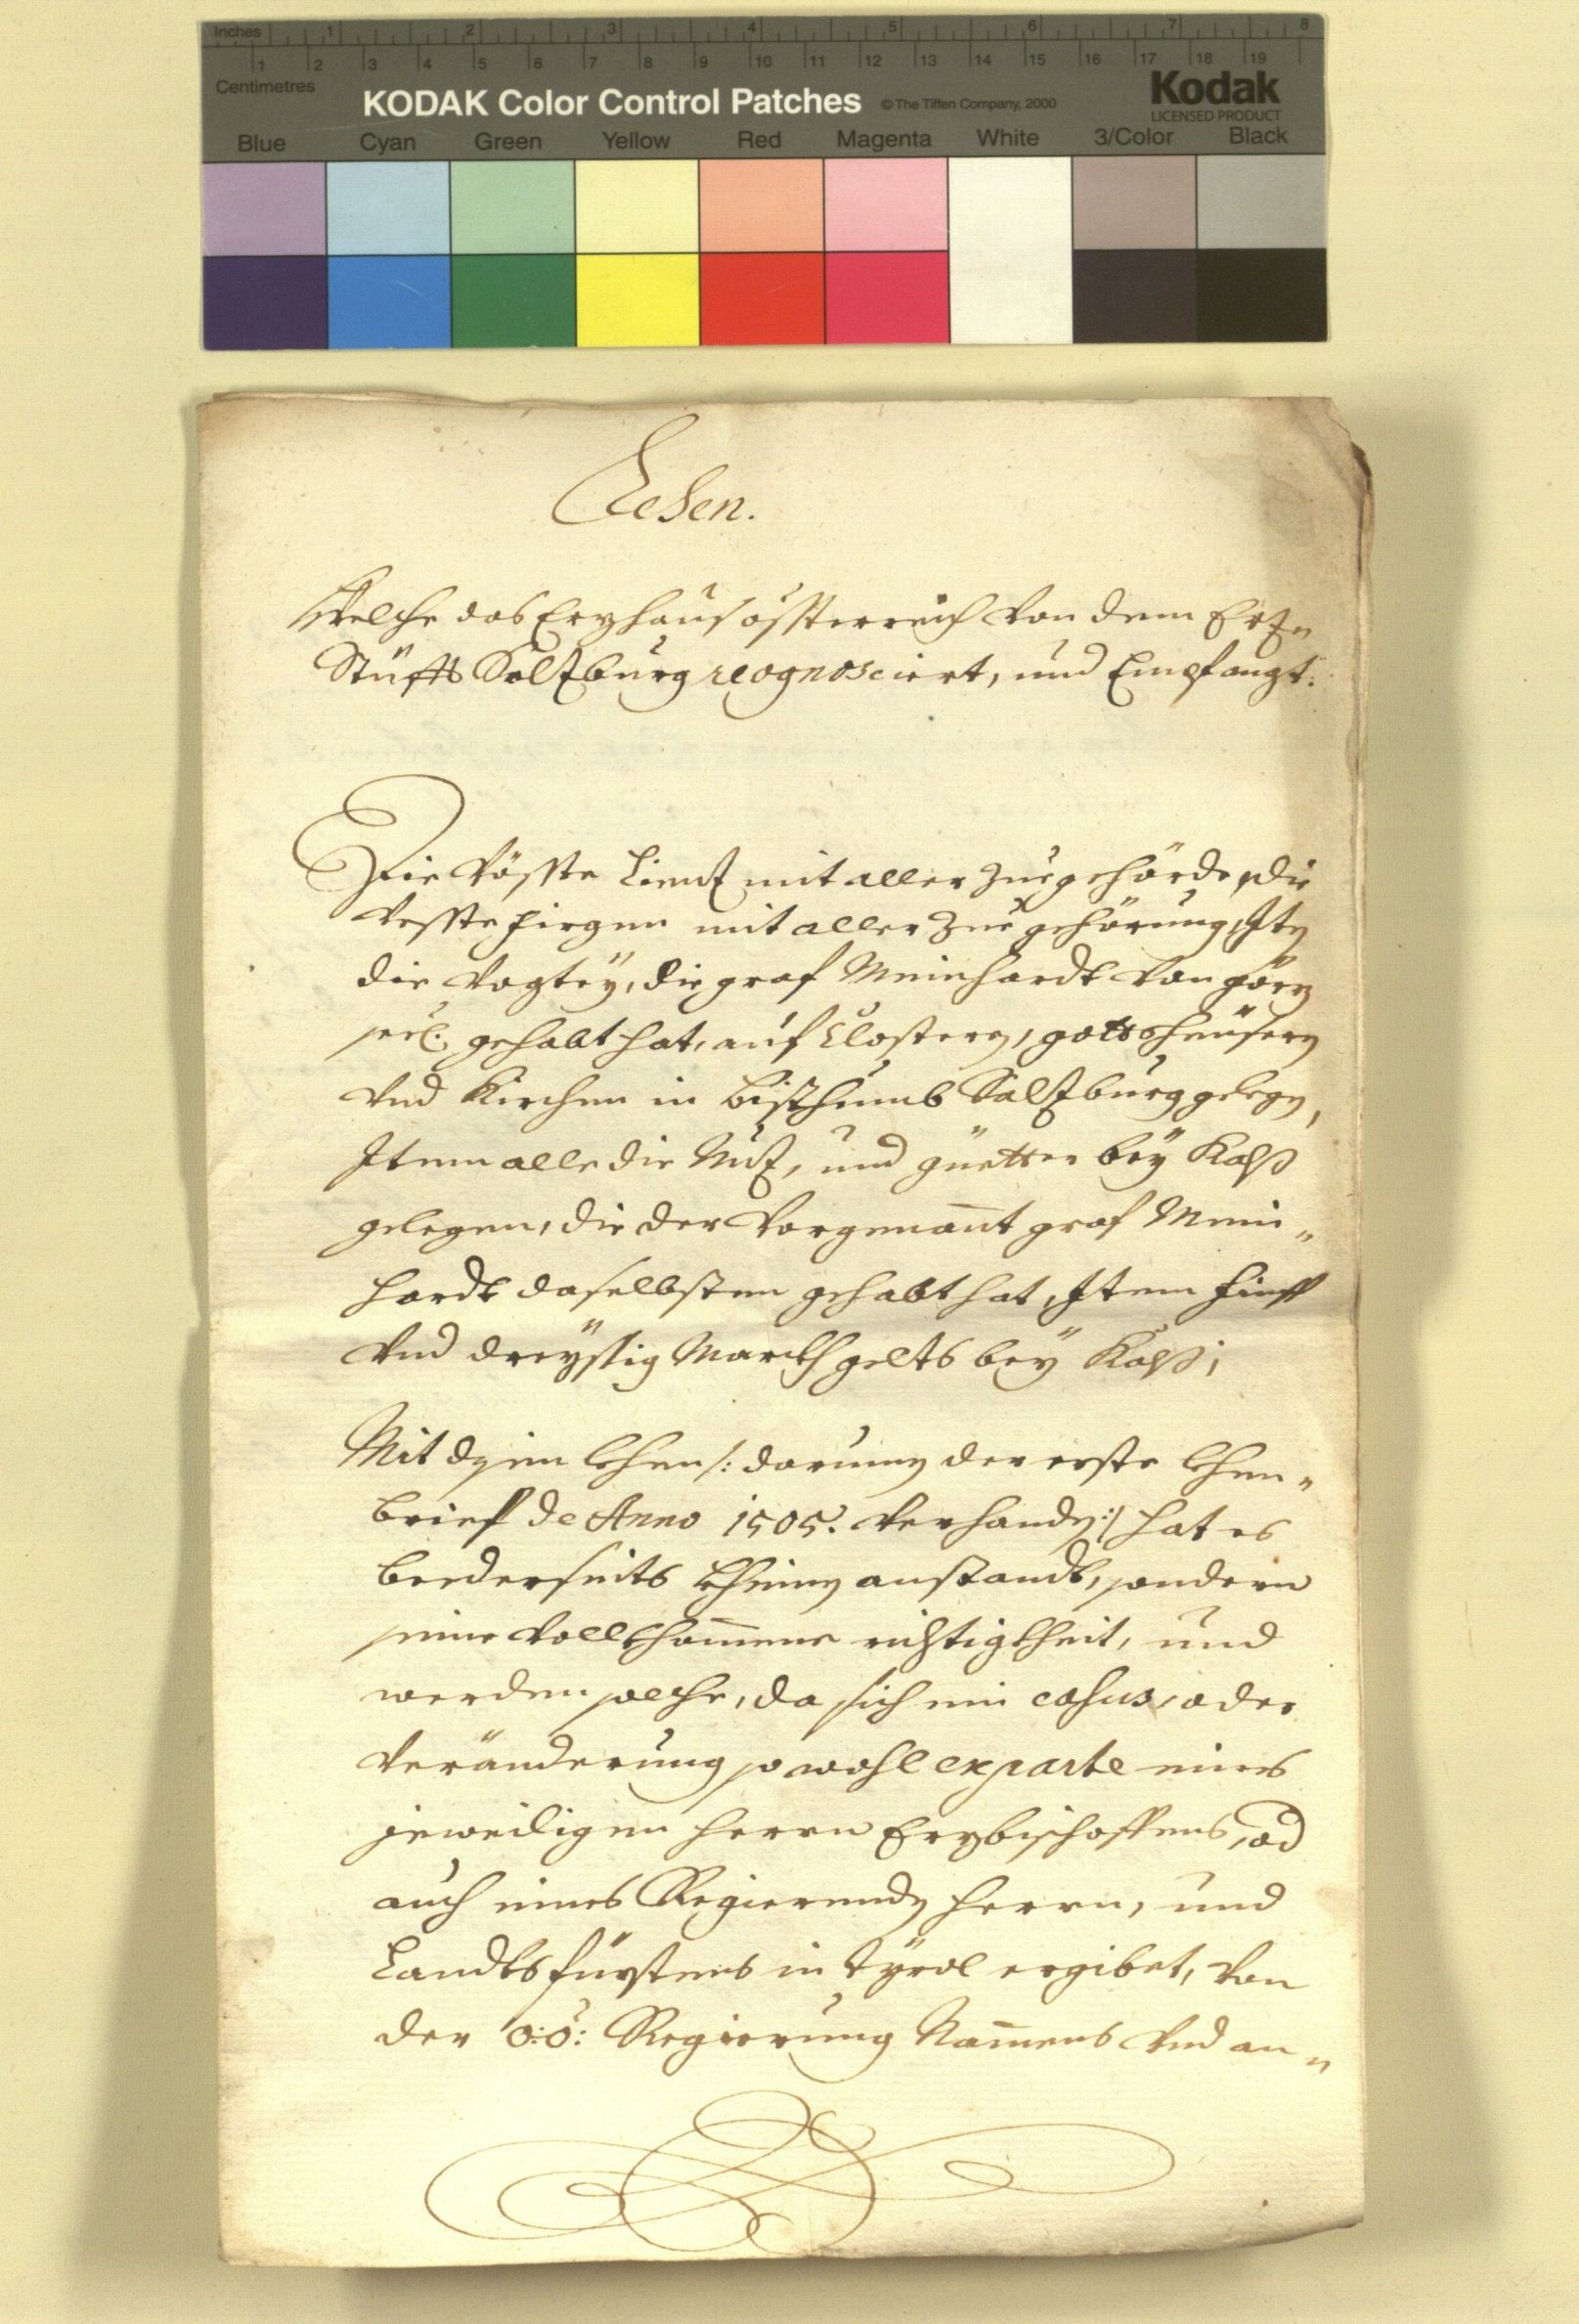 Inches 1 2 3 4 5 6 7 8
1 2 3 4 5 6 7 8 9 10 11 12 13 14 15 16 17 18 19
Centimetres
KODAK Color Control Patches © The Tiffen Company, 2000 Kodak
LICENSED PRODUCT
Blue Cyan Green Yellow Red Magenta White 3/Color Black
Lehen.
Welche das Erzhaus össterreich von dem Erz„
Stüffts Salzburg recognosciert, und Empfangt.
Die Vösste Lienz mit aller Zuegehörde, die
Vesste firgen mit aller Zuegehörung, Itn
die Vogtey, die graf Meinhardt von görz
seel: gehabt hat, auf Clostern, gottsheüsern
Vnd Kirchen in bisthumb Salzburg gelegn,
Item alle die Nuz, und güetter bey Kalß
gelegen, die der Vorgenant graf Mein„
hardt daselbsten gehabt hat, Item fünff
Vnd dreyssig Marckh gelts bey Kalß;
Mit disem Lehen /: darumn der erste Lehen„
brief de Anno 1505. Verhandn :/ hat es
beederseits kheinen anstandt, sondern
seine vollkhomene richtigkheit, und
werden solche, da sich ein casus, oder
Veränderung so wohl ex parte eines
jeweiligen Herrn Erzbischoffens, od
auch eines Regierendn Herrn, und
Landtsfürstens in Tyrol ergibet, von
der O:Ö: Regierung Namens Vnd an„